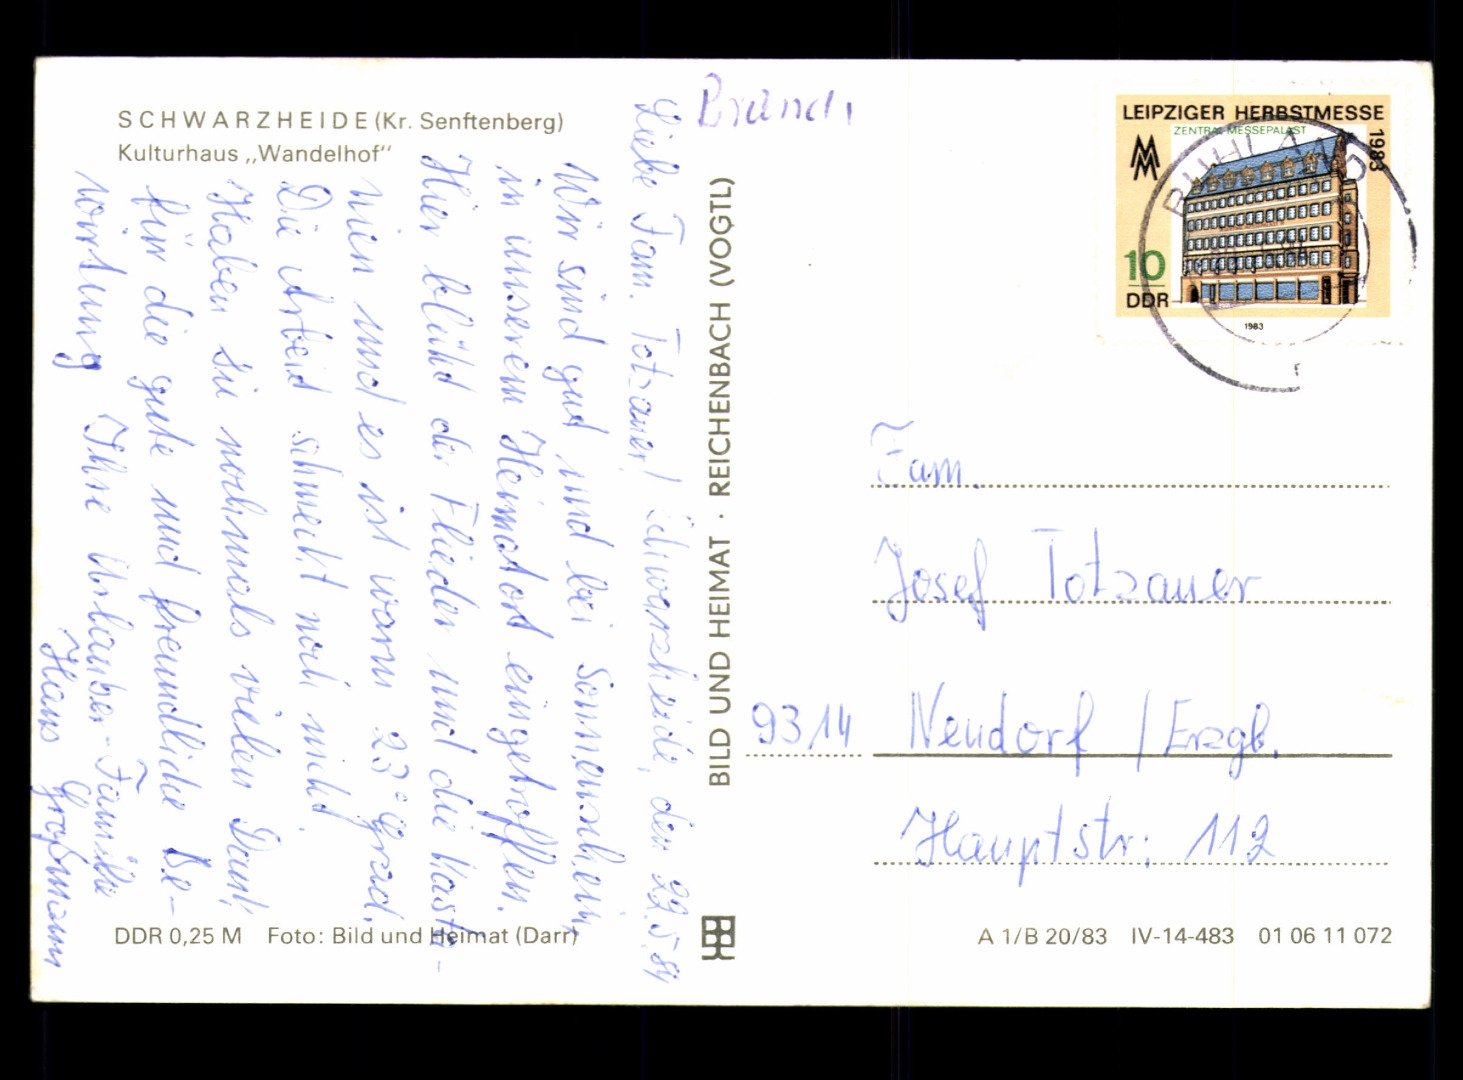 SCHWARZHEIDE (Kr. Senftenberg)
Kulturhaus „Wandelhof“
Liebe Fam. Totzauer! Schwarzheide, den 29.5.84
Wir sind gut und bei Sonnenschein
in unserem Heimatort eingetroffen.
Hier blüht der Flieder und die Kasta-
nien und es ist warm 23° Grad.
Die Arbeit schmeckt noch nicht.
Haben Sie nochmals vielen Dank
für die gute und freundliche Be-
wirtung Ihre Urlauber-Familie
Hans Großmann
DDR 0,25 M Foto: Bild und Heimat (Darr)
BILD UND HEIMAT · REICHENBACH (VOGTL)
LEIPZIGER HERBSTMESSE 1983
ZENTRAL MESSEPALAST
MM
10
DDR
1983
RUHLAND
Fam.
Josef Totzauer
9314 Neudorf / Erzgb.
Hauptstr. 112
A 1/B 20/83 IV-14-483 01 06 11 072